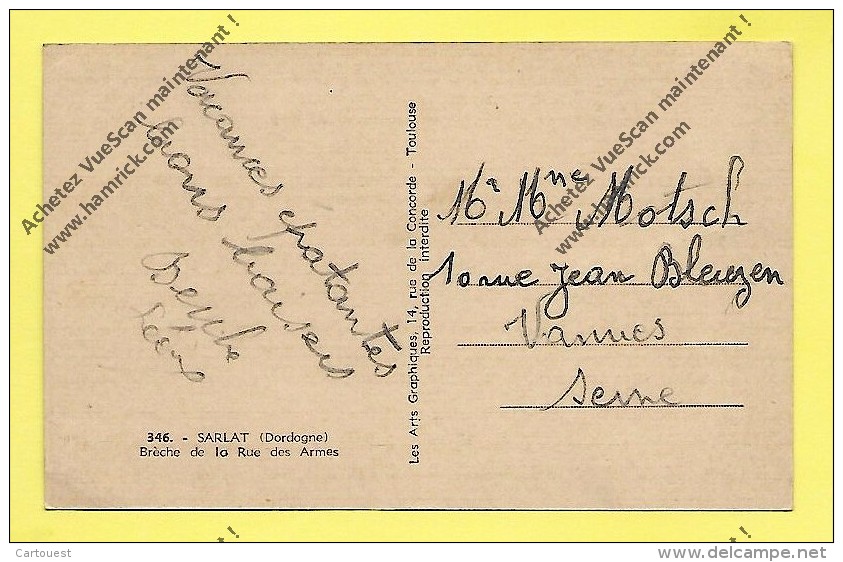 Vacances épatantes
bons baisers
346. - SARLAT (Dordogne)
Brèche de la Rue des Armes
Les Arts Graphiques, 14, rue de la Concorde - Toulouse
Reproduction interdite
Mr Mme Motsch
10 rue Jean Bleuzen
Vanves
Seine
Achetez VueScan maintenant !
www.hamrick.com
Achetez VueScan maintenant !
www.hamrick.com
Cartouest
www.delcampe.net